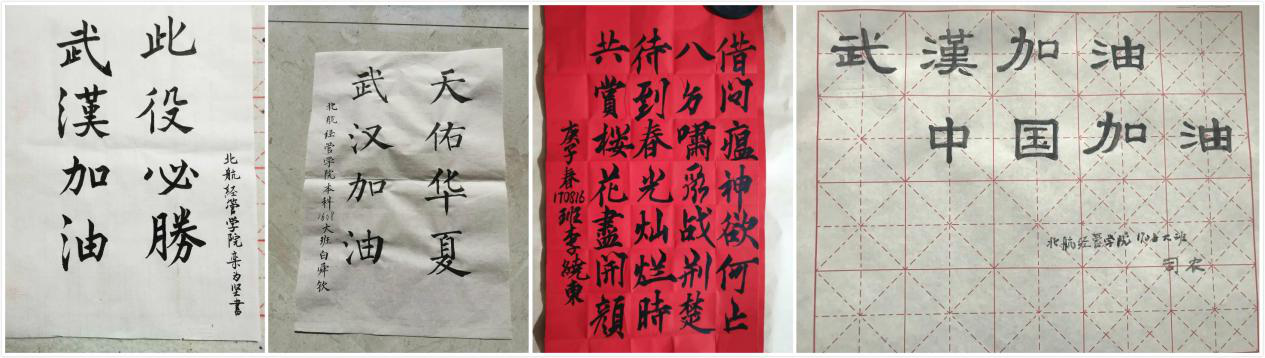 此役必勝
武漢加油
北航经管学院
天佑华夏
武汉加油
北航经管学院本科1808大班白舜钦
借问瘟神欲何亡
八方嘯聚战荆楚
待到春光灿烂時
共賞桜花盡開顔
庚子春170816班李繞東
武漢加油
中国加油
北航经管学院1708大班
司农